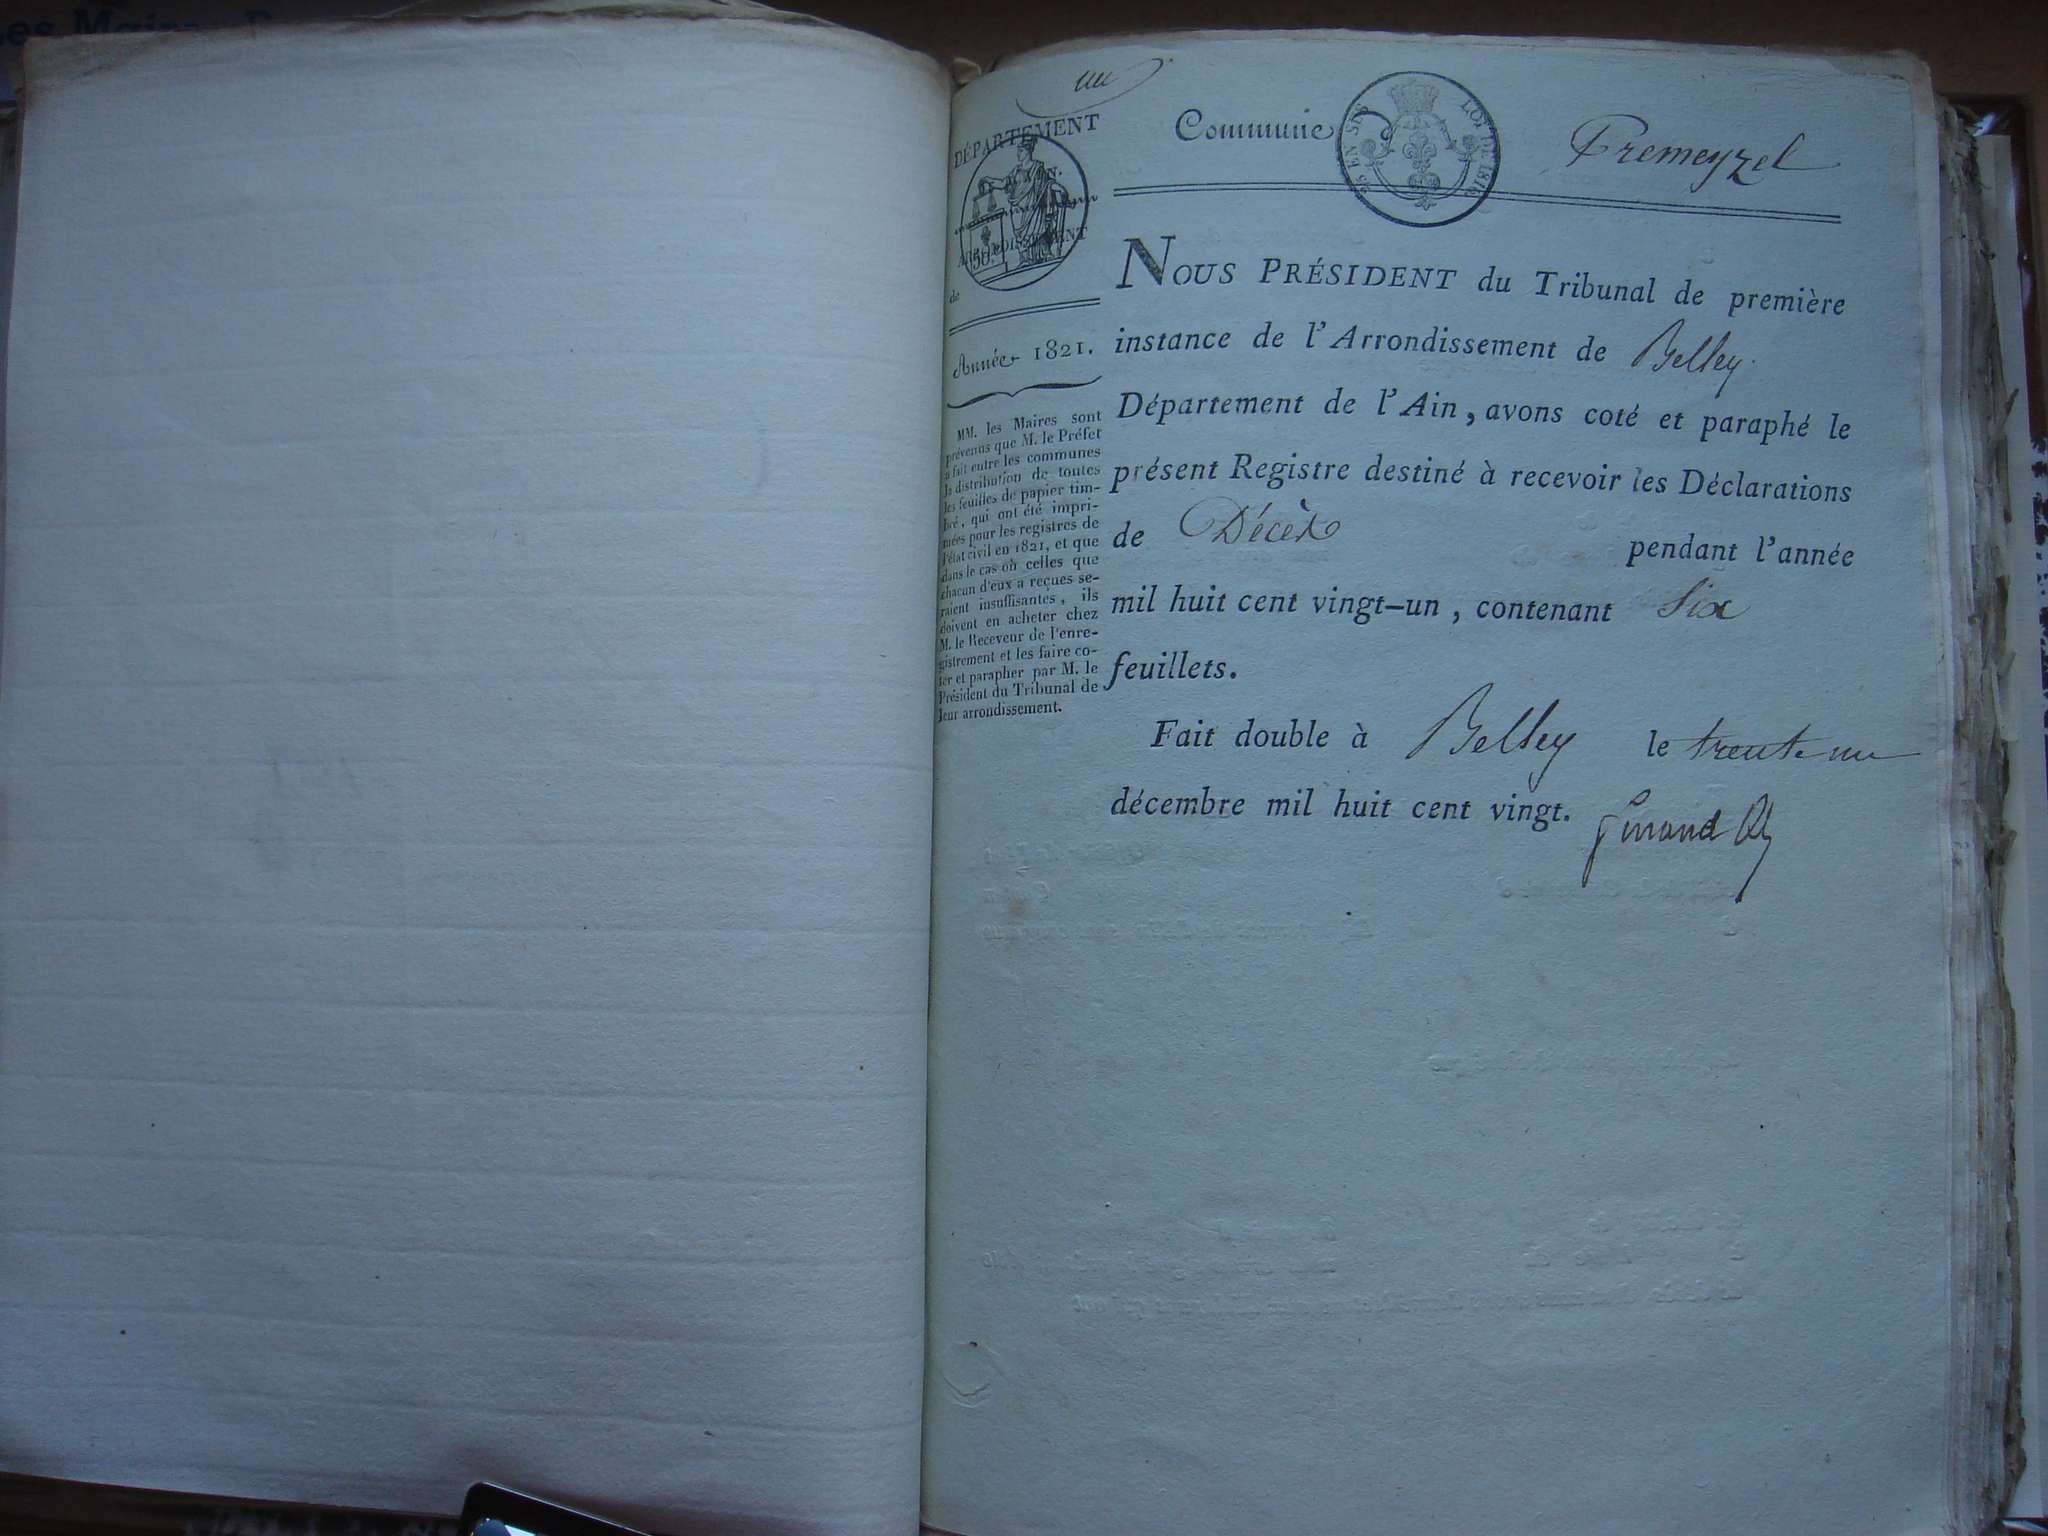 un
Commune Premeyzel
DÉPARTEMENT
ARRONDISSEMENT
de
25 EN SUS LOI DE 1816
Année 1821.
MM. les Maires sont
prévenus que M. le Préfet
a fait entre les communes
la distribution de toutes
les feuilles de papier tim-
bré, qui ont été impri-
mées pour les registres de
l'état civil en 1821, et que
dans le cas où celles que
chacun d'eux a reçues se-
raient insuffisantes, ils
doivent en acheter chez
M. le Receveur de l'enre-
gistrement et les faire co-
ter et parapher par M. le
Président du Tribunal de
leur arrondissement.
NOUS PRÉSIDENT du Tribunal de première
instance de l'Arrondissement de Belley.
Département de l'Ain, avons coté et paraphé le
présent Registre destiné à recevoir les Déclarations
de Décès pendant l'année
mil huit cent vingt-un, contenant Six
feuillets.
Fait double à Belley le trente un
décembre mil huit cent vingt.